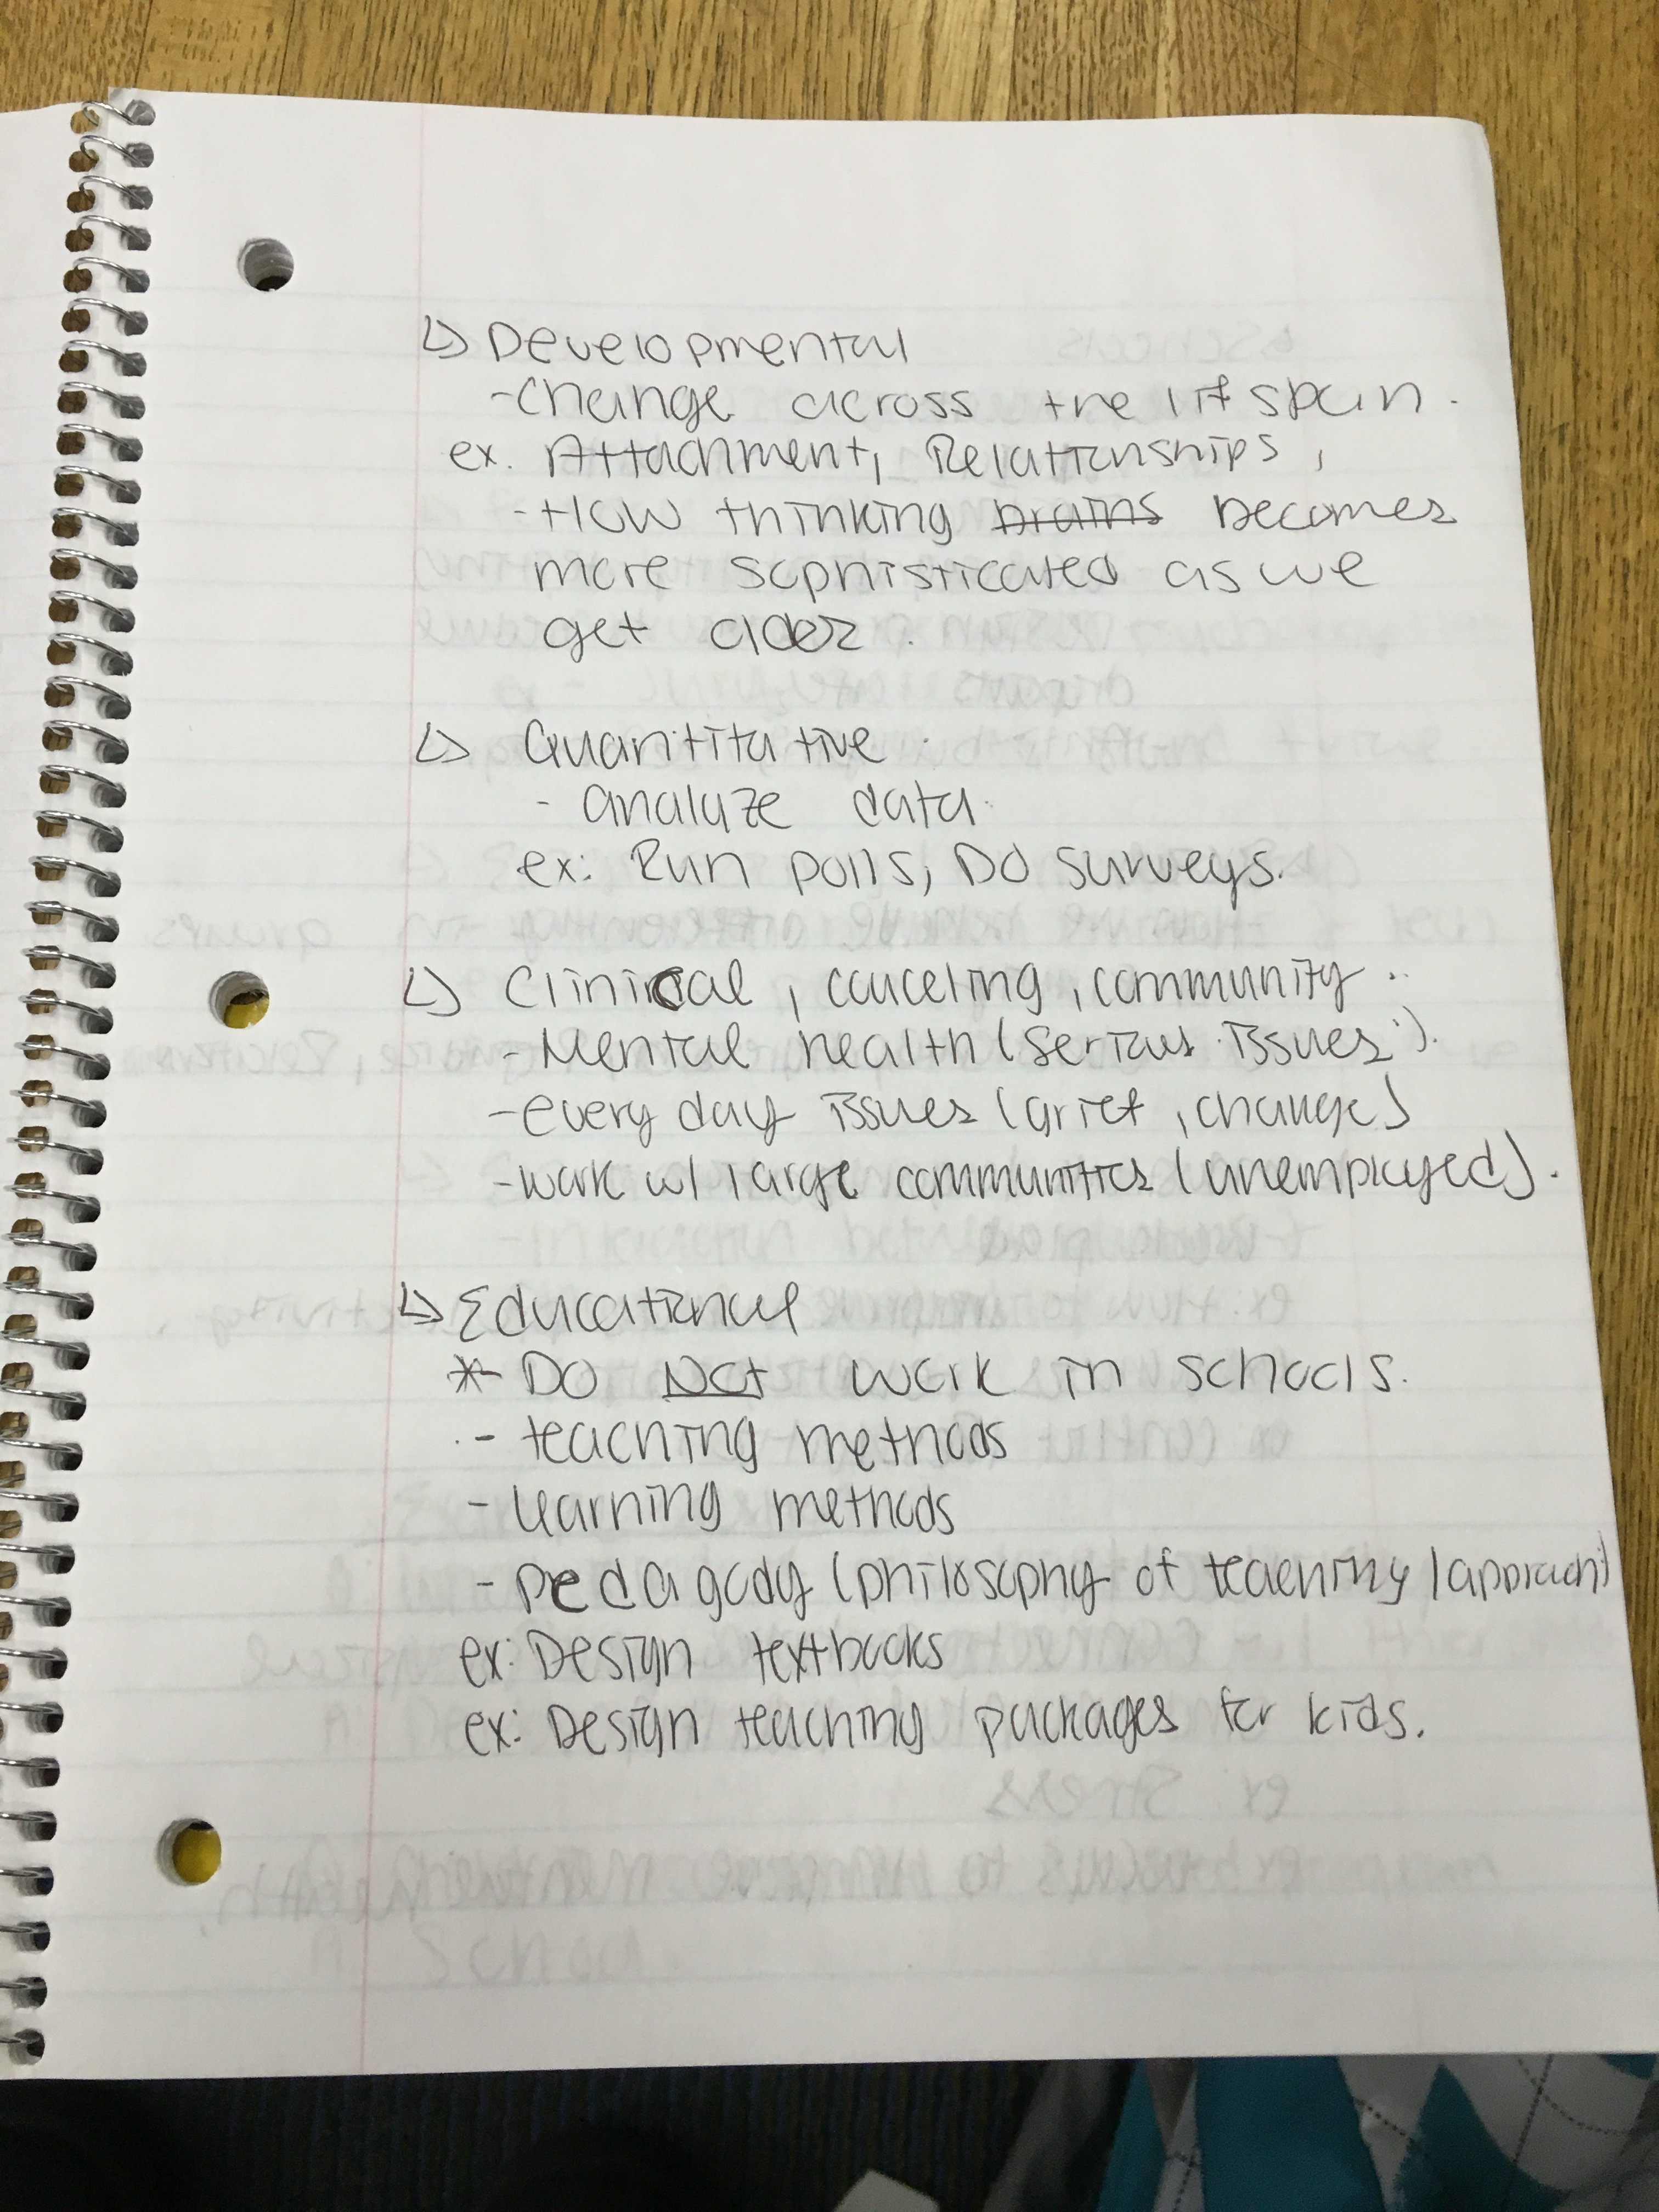 ↳ Developmental
- Change across the lifspan.
ex. Attachment, Relationships,
- How thinking brains becomes
more sophisticated as we
get older.
↳ Quantitative
- analyze data.
ex: Run polls, Do surveys.
↳ Clinical, couceling, community.
- Mental health (serious issues).
- every day issues (grief, change)
- work w/ large communities (unemployed).
↳ Educational
* DO NOT work in schools.
- teaching methods
- learning methods
- pedagody (philosophy of teaching / approach)
ex: Design textbooks
ex: Design teaching packages for kids.